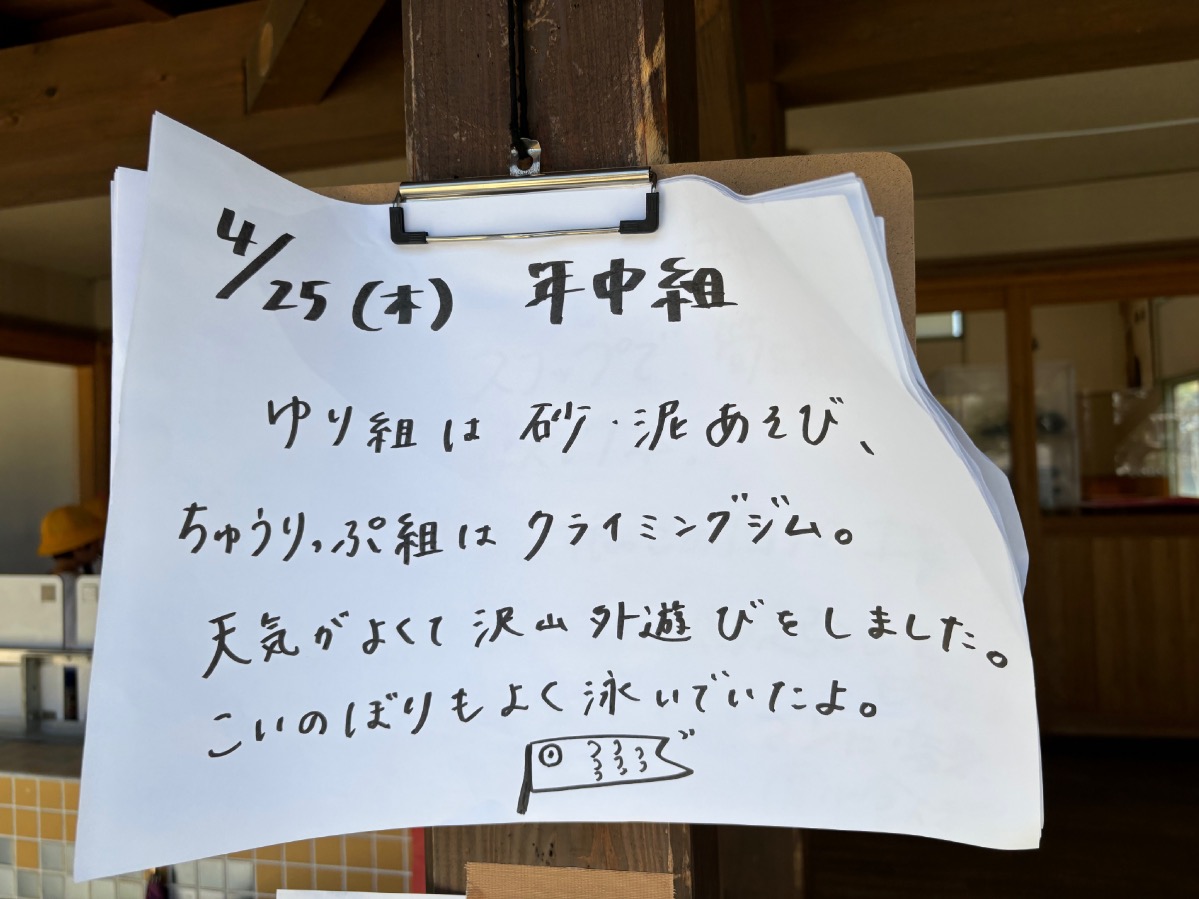 4/25(木) 年中組
ゆり組は 砂・泥あそび、
ちゅうりっぷ組は クライミングジム。
天気がよくて 沢山 外遊びをしました。
こいのぼりもよく泳いでいたよ。